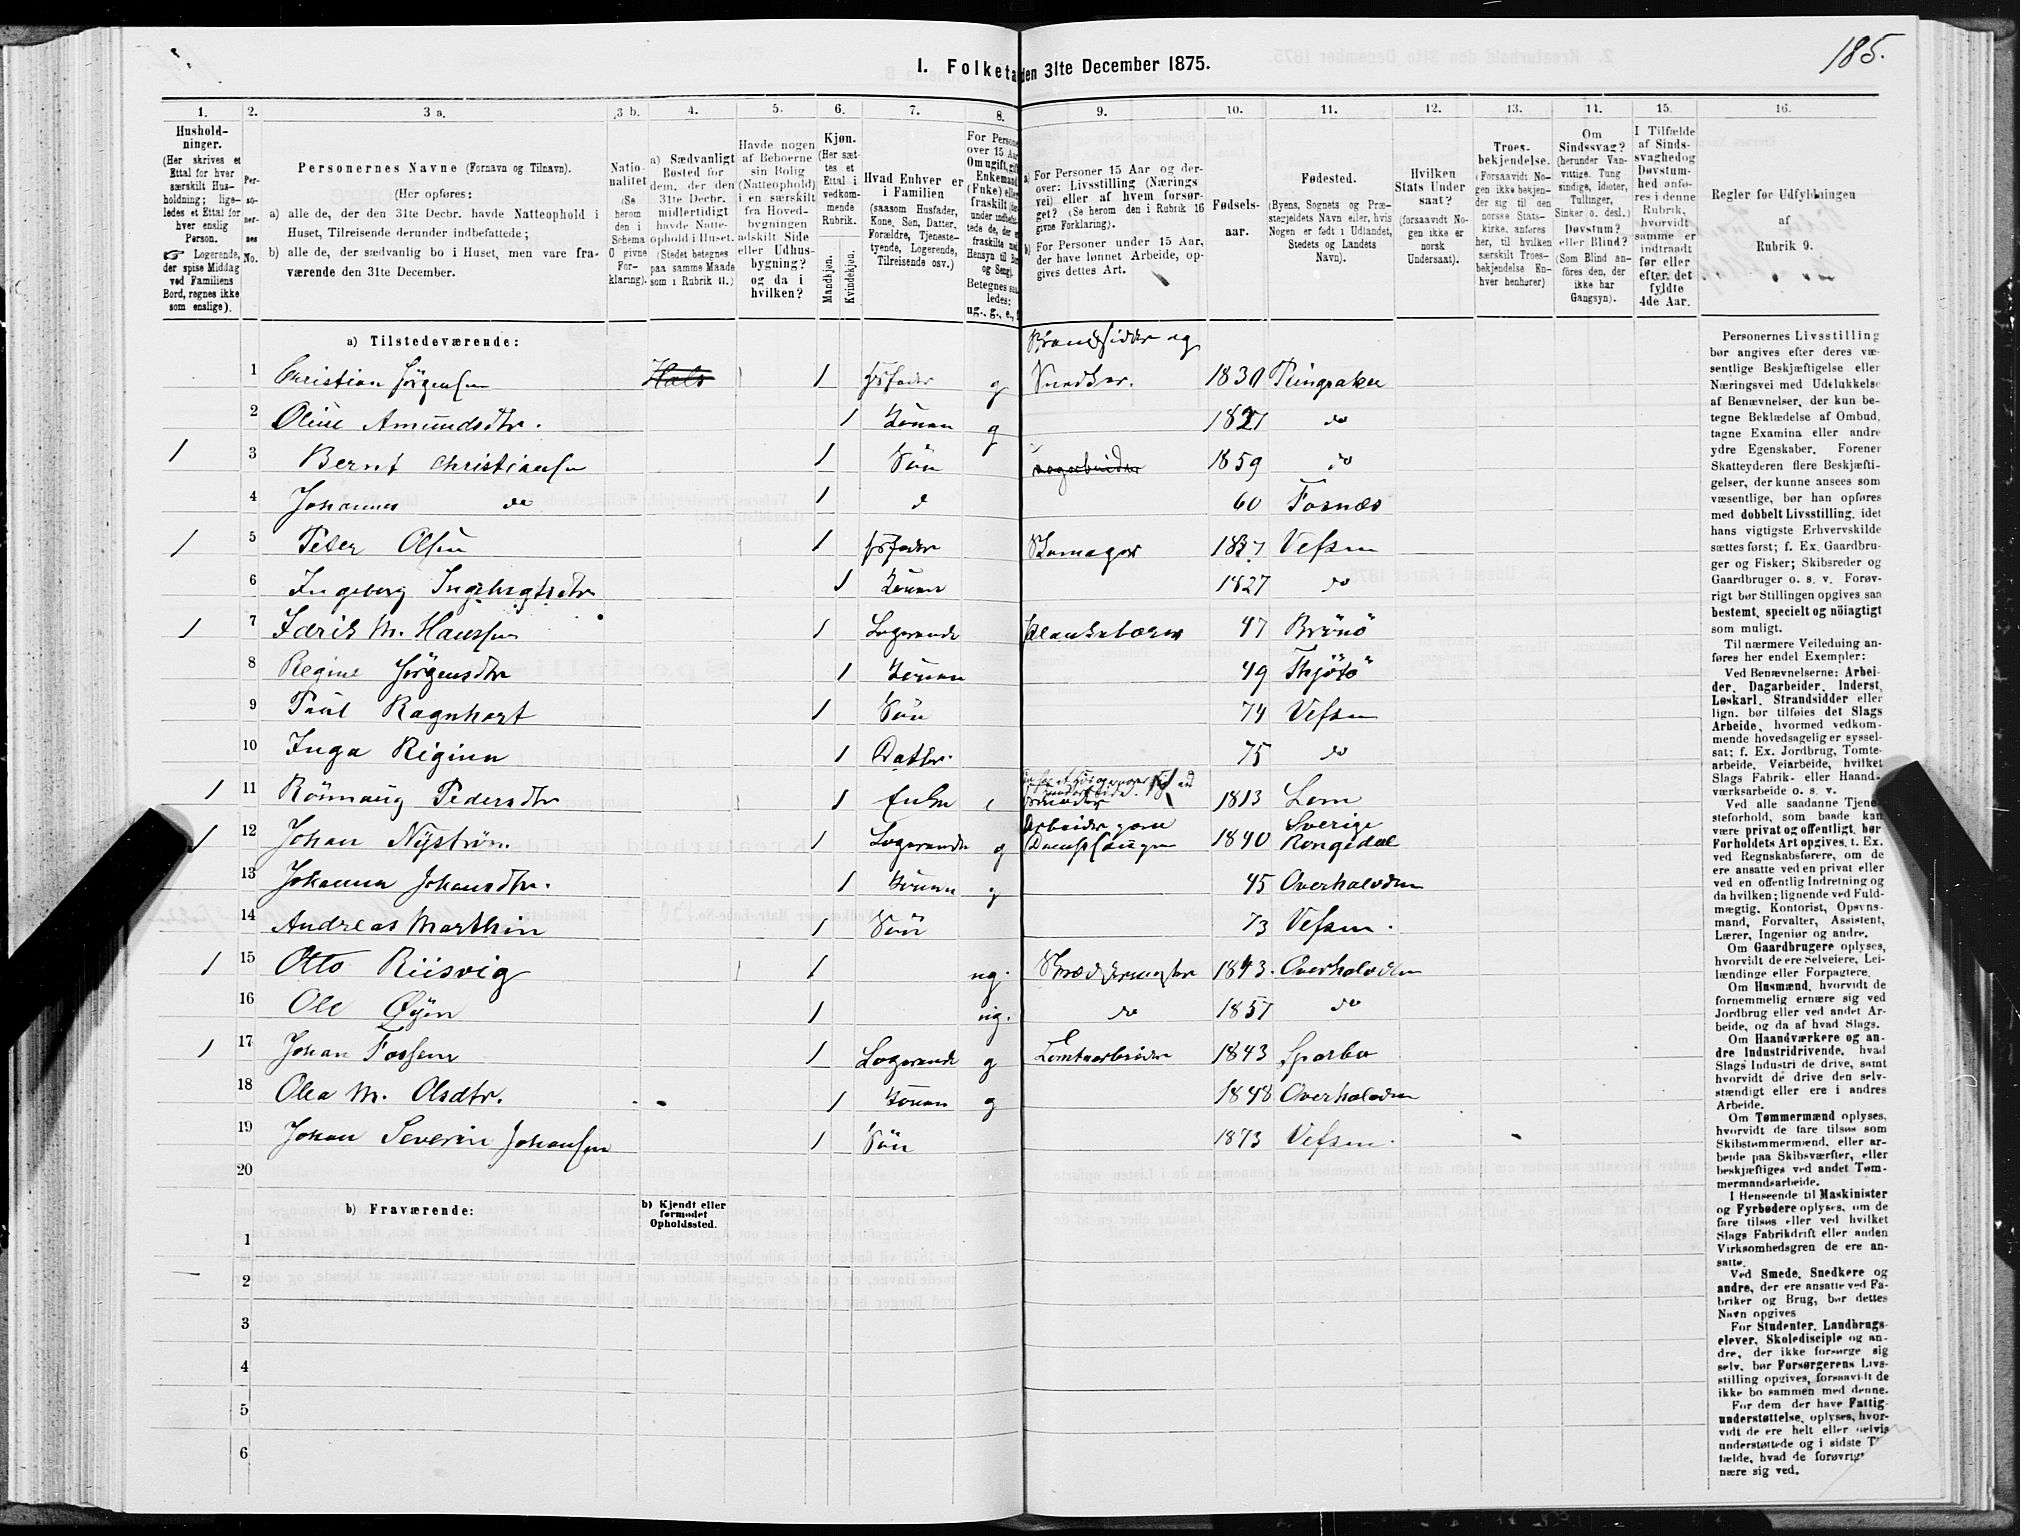 185.
I. Folketa den 31te December 1875.
1. 2. 3 a. 3 b. 4. 5. 6. 7. 8. 9. 10. 11. 12. 13. 14. 15. 16.
Hushold-
ninger.
(Her skrives et
Ettal for hver
særskilt Hus-
holdning; lige-
ledes et Ettal for
hver enslig
Person.
☞ Logerende,
der spise Middag
ved Familiens
Bord, regnes ikke
som enslige).
Per-
so-
ner-
nes
No.
Personernes Navne (Fornavn og Tilnavn).
(Her opføres:
a) alle de, der den 31te Decbr. havde Natteophold i
Huset, Tilreisende derunder indbefattede;
b) alle de, der sædvanlig bo i Huset, men vare fra-
værende den 31te December.
Natio-
nalitet
(Se
herom
den i
Schema
O givne
For-
klaring).
a) Sædvanligt
Bosted for
dem, der den
31te Decbr.
midlertidigt
havde Natte-
ophold i Huset.
(Stedet betegnes
paa samme Maade
som i Rubrik 11.)
Havde nogen
af Beboerne
sin Bolig
(Natteophold)
i en særskilt
fra Hoved-
bygningen
adskilt Side
eller Udhus-
bygning?
og da i
hvilken?
Kjøn.
(Her sæt-
tes et
Ettal i
vedkom-
mende
Rubrik.
Mandkjøn.
Kvindekjøn.
Hvad Enhver er
i Familien
(saasom Husfader,
Kone, Søn, Datter,
Forældre, Tjeneste-
tyende, Logerende,
Tilreisende osv.)
For Persone
over 15 Aar
Om ugift, gift
Enkemand
(Enke) eller
fraskilt
Betegnes saa-
ledes:
ug., g., e., f.
a) For Personer 15 Aar og der-
over: Livsstilling (Nærings
vei) eller af hvem forsør-
get? (Se herom den i Rubrik 16
givne Forklaring).
b) For Personer under 15 Aar,
der have lønnet Arbeide, op-
gives dettes Art.
Fødsels-
aar.
Fødested.
(Byens, Sognets og Præ-
stegjeldets Navn eller, hvis
Nogen er født i Udlandet,
Stedets og Landets
Navn).
Hvilken
Stats Under
saat?
(forsaavidt No-
gen ikke er
norsk
Undersaat).
Troes-
bekjendelse.
(Forsaavidt No-
gen ikke bekjen-
der sig til den
norske Stats-
kirke, anføres
her, til hvilken
særskilt Troes-
bekjendelse En-
hver henhører)
Om
Sindssvag?
(herunder Van-
vittige, Tung
sindige, Idioter,
Tullinger,
Sinker o. desl.)
Døvstum?
eller Blind?
(Som Blind an-
føres den, der
ikke har
Gangsyn).
I Tilfælde
af Sinds-
svaghedog
Døvstum-
hed anfø-
res i denne
Rubrik,
hvorvidt
samme er
indtraadt
før eller
efter det
fyldte
4de Aar.
Regler for Udfyldningen
af
Rubrik 9.
a) Tilstedeværende:
1 Christian Jörgensen Hals 1 Hsfader g Strandsidder og Snedker. 1830
2 Oline Amundsdtr. 1 Konen g 1827 do
1 3 Bernt Christiansen 1 Sön 1859 do
4 Johannes do 1 d 60
1 5 Peter Olsen 1 Hsfader Skomager Vefsen
6 Ingeborg Ingebrigtsdtr 1 Konen 1827 do
1 7 M. Hanssen 1 Logerende 47 Brönö
8 Regine Jörgensdtr 1 Konen 49 Thjötö
9 Paul Ragnhart 1 Sön 74 Vefsen
10 Inga Regina 1 Datter. 75 do
1 11 Rönnaug Pedersdtr 1 Enke 1813 Lom
1 12 Johan Nyström. 1 Logerende g Arbeider paa Dampsaugen 1840 Sverige
13 Johanna Johansdtr. 1 Konen g 45 Overhalvden
14 Andreas Marthin 1 Sön 73 Vefsen.
1 15 Otto Riisvig 1 ug. Skrædermester 1843. Overhalvden
16 Ole Öyen 1 ug. do 1857 do
1 17 Johan Fossem 1 Logerende g Tomtearbeider 1843 Sparbo
18 Olea M. Olsdtr. 1 Konen g 1848 Overhalvden
19 Johan Severin Johansen 1 Sön 1873 Vefsen.
20
b) Fraværende:
b) Kjendt eller
formodet
Opholdssted.
1
2
3
4
5
6
Personernes Livsstilling
bør angives efter deres væ-
sentlige Beskjæftigelse eller
Næringsvei med Udelukkelse
af Benævnelser, der kun be-
tegne Beklædelse af Ombud,
tagne Examina eller andre
ydre Egenskaber. Forener
Skatteyderen flere Beskjæfti-
gelser, der kunne ansees som
væsentlige, bør han opføres
med dobbelt Livsstilling, idet
hans vigtigste Erhvervskilde
sættes først; f. Ex. Gaardbru-
ger og Fisker; Skibsreder og
Gaardbruger o. s. v. Forøv-
rigt bør Stillingen opgives saa
bestemt, specielt og nöiagtigt
som muligt.
Til nærmere Veiledning an-
føres her endel Exempler:
Ved Benævnelserne: Arbei-
der, Dagarbeider, Inderst,
Løskarl, Strandsidder eller
lign. bør tilføies det Slags
Arbeide, hvormed vedkom-
mende hovedsagelig er syssel-
sat; f. Ex. Jordbrug, Tomte-
arbeide, Veiarbeide, hvilket
Slags Fabrik- eller Haand-
værksarbeide o. s. v.
Ved alle saadanne Tjene-
steforhold, som baade kan
være privat og offentligt, bør
Forholdets Art opgives, t. Ex.
ved Regnskabsførere, om de
ere ansatte ved en privat eller
ved en offentlig Indretning og
da hvilken; lignende ved Fuld-
mægtig, Kontorist, Opsyns-
mand, Forvalter, Assistent,
Lærer, Ingeniør og andre.
Om Gaardbrugere oplyses,
hvorvidt de ere Selveiere, Lei-
lændinge eller Forpagtere.
Om Husmænd, hvorvidt de
fornemmelig ernære sig ved
Jordbrug eller ved andet Ar-
beide, og da af hvad Slags.
Om Haandværkere og an-
dre Industridrivende, hvad
Slags Industri de drive, samt
hvorvidt de drive den selv-
stændigt eller ere i andres
Arbeide.
Om Tømmermænd oplyses,
hvorvidt de fare tilsøs som
Skibstømmermænd, eller ar-
beide paa Skibsværfter, eller
beskjæftiges ved andet Tøm-
mermandsarbeide.
I Henseende til Maskinister
og Fyrbødere oplyses, om de
fare tilsøs eller ved hvilket
Slags Fabrikdrift eller anden
Virksomhedsgren de ere an-
satte.
Ved Smede, Snedkere og
andre, der ere ansatte ved Fa-
briker og Brug, bør dettes
Navn opgives
For Studenter, Landbrugs-
elever, Skoledisciple og an-
dre, der ikke forsørge sig
selv, bør Forsørgerens Livs-
stilling opgives, forsaavidt de
ikke bo sammen med denne.
For dem, der have Fattig-
understøttelse, oplyses, hvor-
vidt de ere helt eller delvis
understøttede og i sidste
fælde, hvad de forøvrigt
nære sig ved.